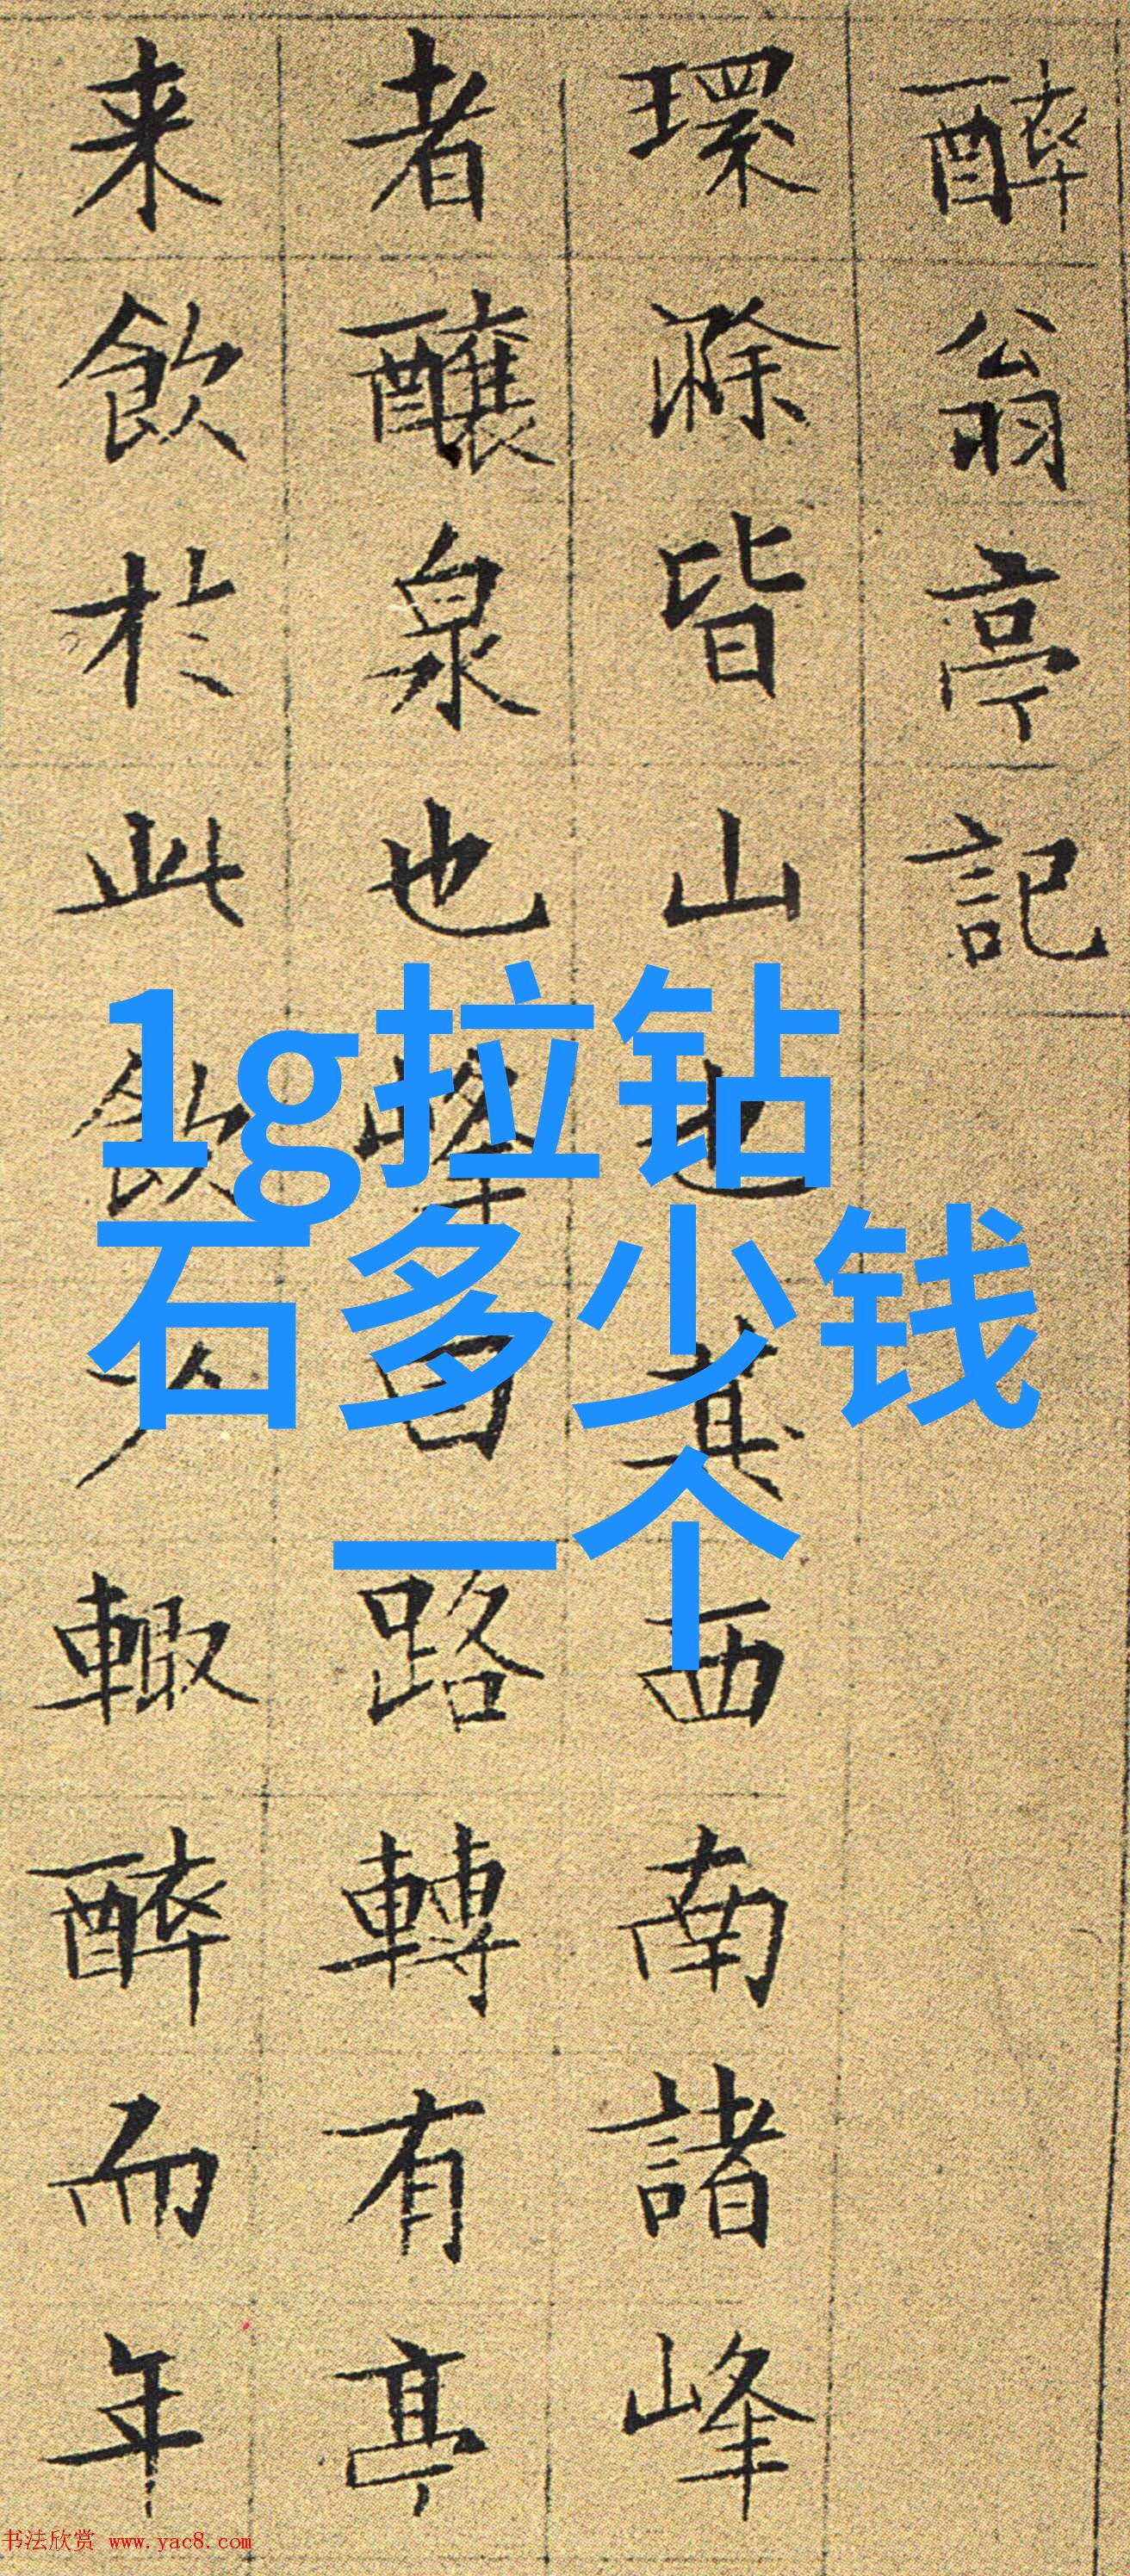 醉翁亭記
環滁皆山也其西南諸峰
者釀泉也峰回路轉有亭
来飲於此飲少輒醉而年
1g拉钻
石多少钱
一个
书法欣赏 www.yac8.com